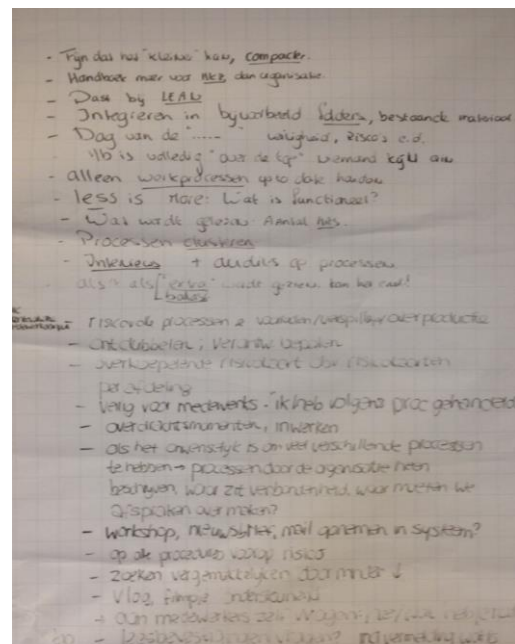 - Fijn dat het "kleine" kan, compacter.
- Handboek meer voor dan organisatie.
- Past bij LEAN
- Integreren in bijvoorbeeld folders, bestaande materiaal
- Dag van de "......" veiligheid, risico's e.d.
is volledig "over de niemand
- alleen werkprocessen up to date houden
- less is more: Wat is functioneel?
- Wat wordt gelezen Aantal hits.
- Processen clusteren
- Interviews + audits op processen
als als "extra ballast" wordt gezien, kan het
- risicovolle processen verspilling/overproductie
- ontdubbelen, verantw bepalen
- overkoepelende risicokaart door risicokaarten
per afdeling
- veilig voor medewerkers - 'ik heb volgens proc gehandeld
- overdrachtsmomenten, inwerken
- als het onwenselijk is om veel verschillende processen
te hebben → processen door de organisatie heen
beschrijven, waar zit verbondenheid, waar moeten we
afspraken over maken?
- workshop, nieuwsbrief, mail opnemen in systeem?
- op alle procedures voorop risico
- zoeken vergemakkelijken door minder ↓
- Vlog, filmpje
→ aan medewerkers zelf vragen